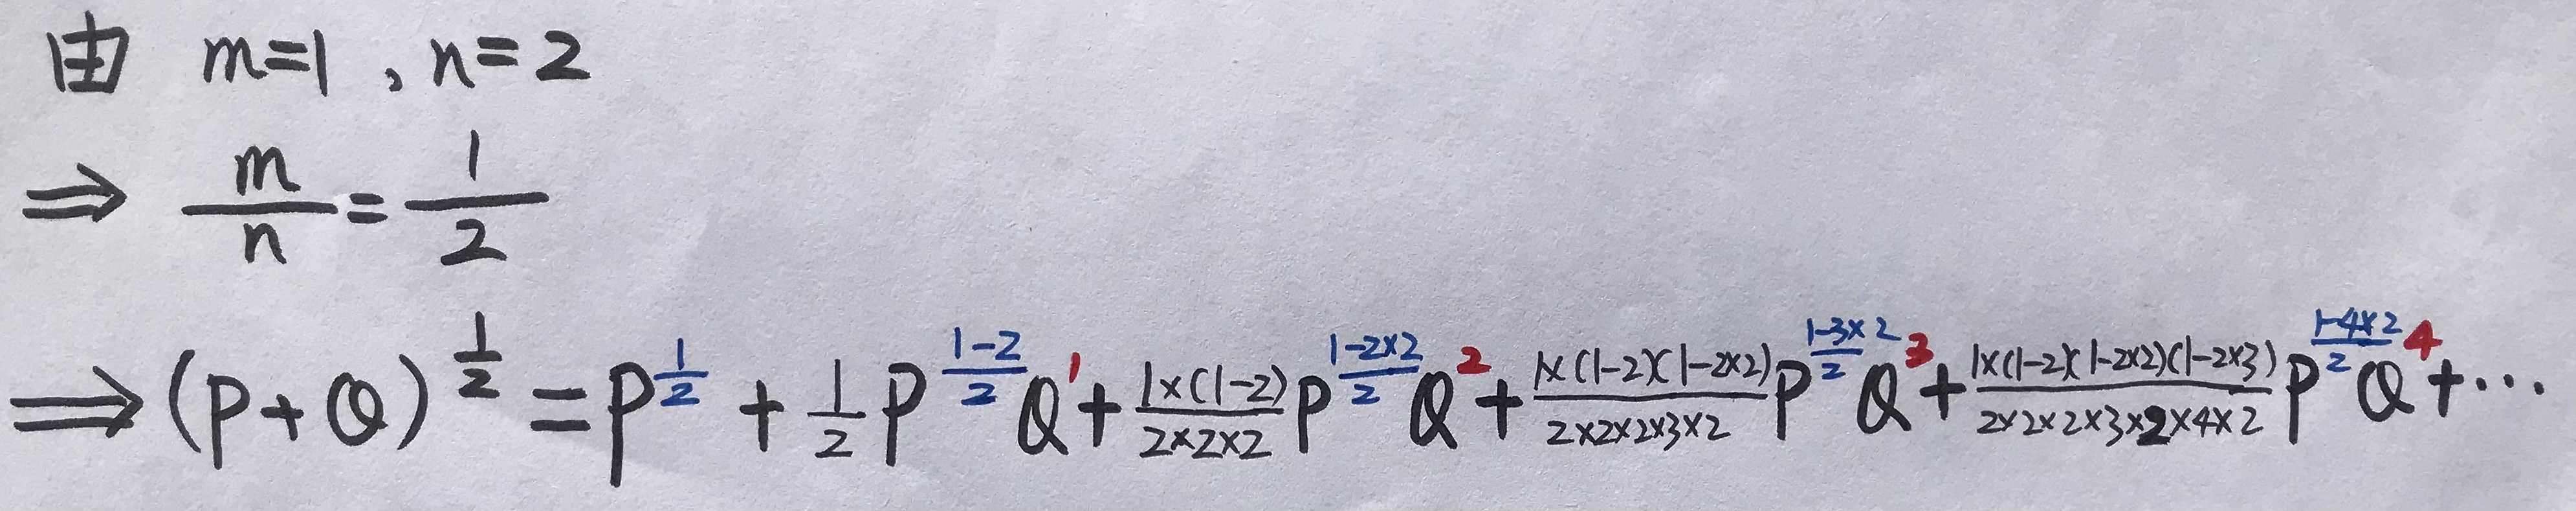 由 m=1，n=2
⇒ m/n = 1/2
⇒ (P+Q)^(1/2) = P^(1/2) + 1/2 P^((1-2)/2) Q^1 + (1×(1-2))/(2×2×2) P^((1-2×2)/2) Q^2 + (1×(1-2)(1-2×2))/(2×2×2×3×2) P^((1-3×2)/2) Q^3 + (1×(1-2)(1-2×2)(1-2×3))/(2×2×2×3×2×4×2) P^((1-4×2)/2) Q^4 + ···